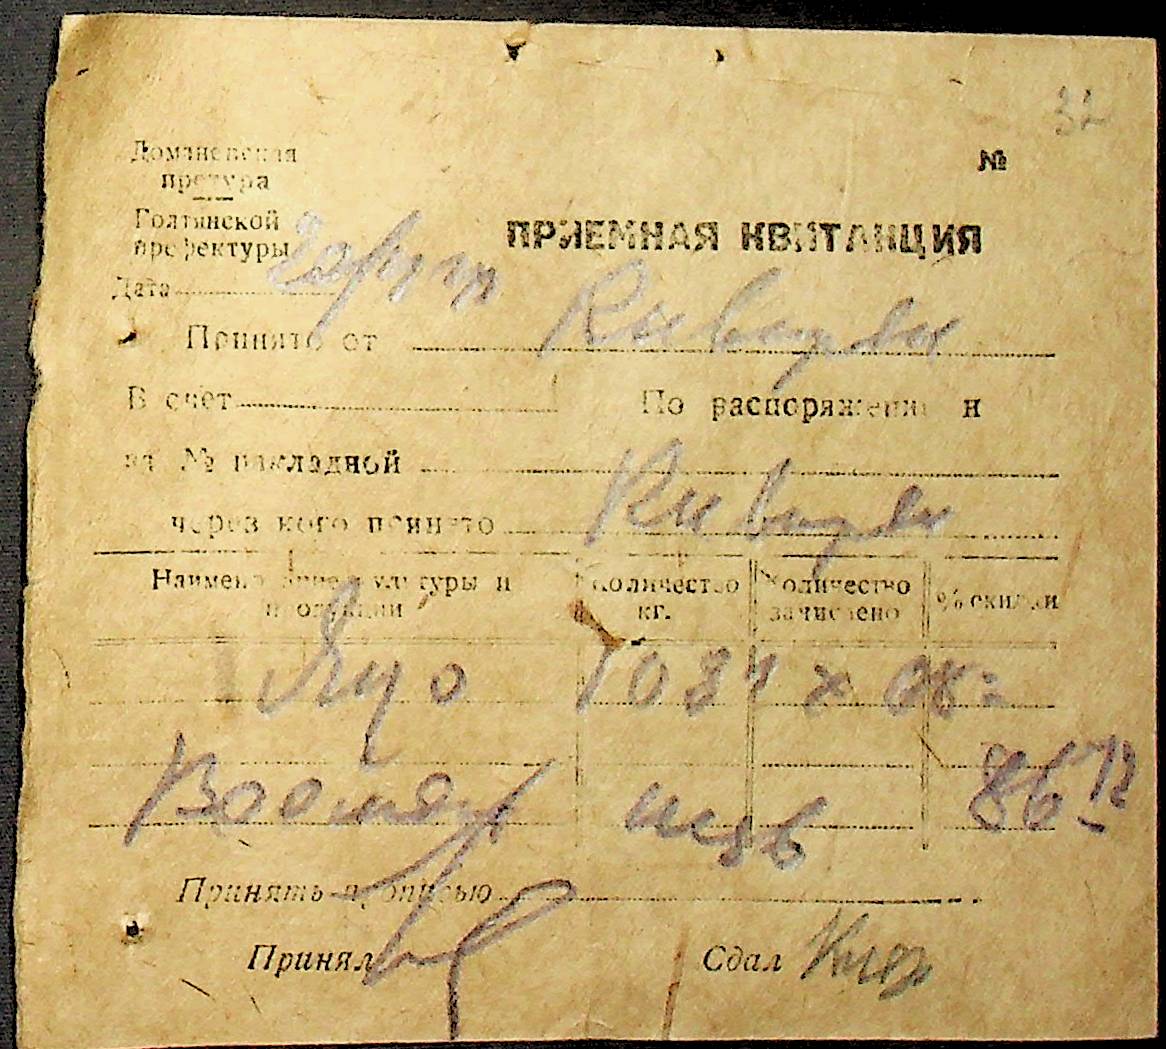 32
Доманевская
претура
№
Голтянской
префектуры
ПРИЕМНАЯ КВИТАНЦИЯ
Дата
Принято от
В счет По распоряжению и
на № накладной
через кого принято
Наименование культуры и
продукции
Количество
кг.
Количество
зачислено
% скидки
Яйцо 1031 х 08=
86 72
Восемьдесят шесть
Принять прописью
Принял Сдал